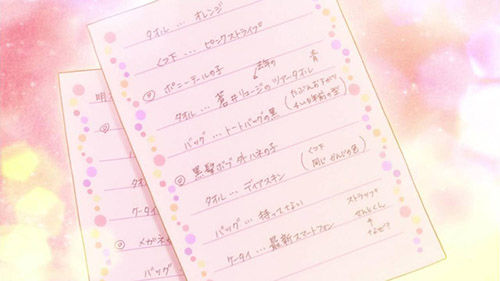 タオル … オレンジ
くつ下 … ピンクストライプ
ポニーテールの子
去年の 青
タオル … 蒼井リュージのツアータオル
(たぶんおさがり
バッグ … トートバッグの黒
黒髪ボブ外ハネの子
(くつ下
同じかんじの色)
タオル … ディアスキン
バッグ … 持ってない
ストラップ
せんとくん
なぜ?
ケータイ … 最新スマートフォン
明
タオ
ケータイ
メガネ
バッグ